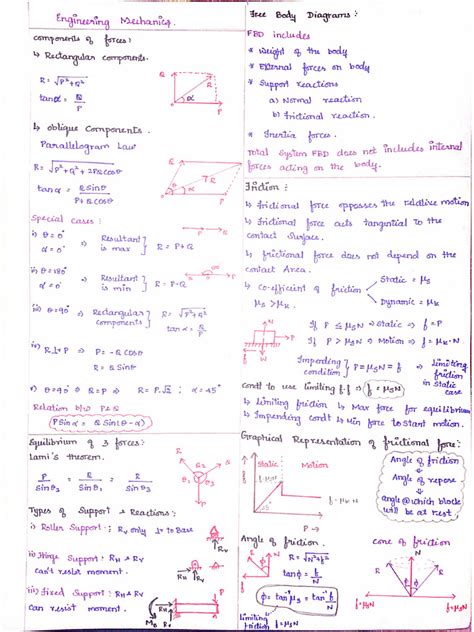 Engineering Mechanics.
components of forces:
↳ Rectangular components.
R = √P²+Q²
tanα = Q/P
Q
R
α
P
↳ oblique Components.
Parallelogram Law
R = √P²+Q²+2PQcosθ
tanα = Qsinθ / P+Qcosθ
Q
R
P
Special cases:
i) θ=0° α=0° ⇒ Resultant is max } R=P+Q
ii) θ=180° α=0° ⇒ Resultant is min } R=P-Q
iii) θ=90° ⇒ Rectangular components } tanα = Q/P
iv) R⊥P ⇒ P = -Q Cosθ
R = Q Sinθ
v) θ=90° & Q=P ⇒ R=P√2 ; α=45°
Relation b/w P & Q
PSinα = QSin(θ-α)
Equilibrium of 3 forces:
Lami's theorem.
P/Sinθ₁ = Q/Sinθ₂ = R/Sinθ₃
Types of Support & Reactions:
i) Roller Support: Rᵥ only ⊥ʳ to Base
Rᵥ
ii) Hinge Support: R_H & Rᵥ
can't resist moment.
R_H
Rᵥ
iii) Fixed Support: R_H & Rᵥ
can resist moment.
R_H
Rᵥ
Free Body Diagrams:
FBD includes
* Weight of the body
* External forces on body
* Support reactions
a) Normal reaction
b) frictional reaction.
* Inertia forces.
Total System FBD does not includes internal
forces acting on the body.
Friction:
↳ frictional force opposes the relative motion
↳ Frictional force acts tangential to the
contact Surface.
↳ frictional force does not depend on the
contact Area.
↳ co-efficient of friction
Static = μs
Dynamic = μK
μs > μK.
N
P
If P ≤ μsN ⇒ Static ⇒ f=P
If P > μsN ⇒ Motion ⇒ f=μK·N
Impending condition } P=μsN=f ⇒ limiting friction in static case
Condt to use limiting f.f ⇒ f=μsN
↳ limiting friction ↳ Max force for equilibrium
↳ Impending condt ↳ Min force to Start motion.
Graphical Representation of frictional force:
f
Static
Motion
f=μsN
f=μKN
P
Angle of friction
=
Angle of repose
=
angle @ which block
will be at rest
Angle of friction:
R = √N²+f²
tanφ = f/N
φ = tan⁻¹μs = tan⁻¹ f/N
Limiting friction
f=μsN
cone of friction
N
R
R
φ
φ
f=μsN
f=μsN